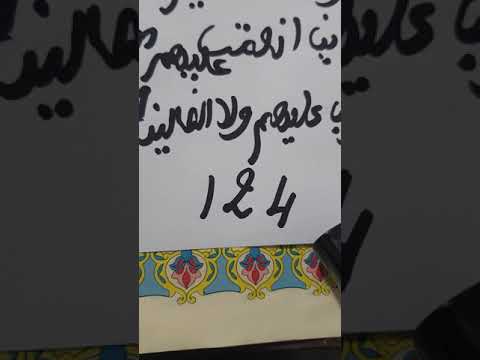 ين انعمت عليهم
ب عليهم ولا الضالين
124